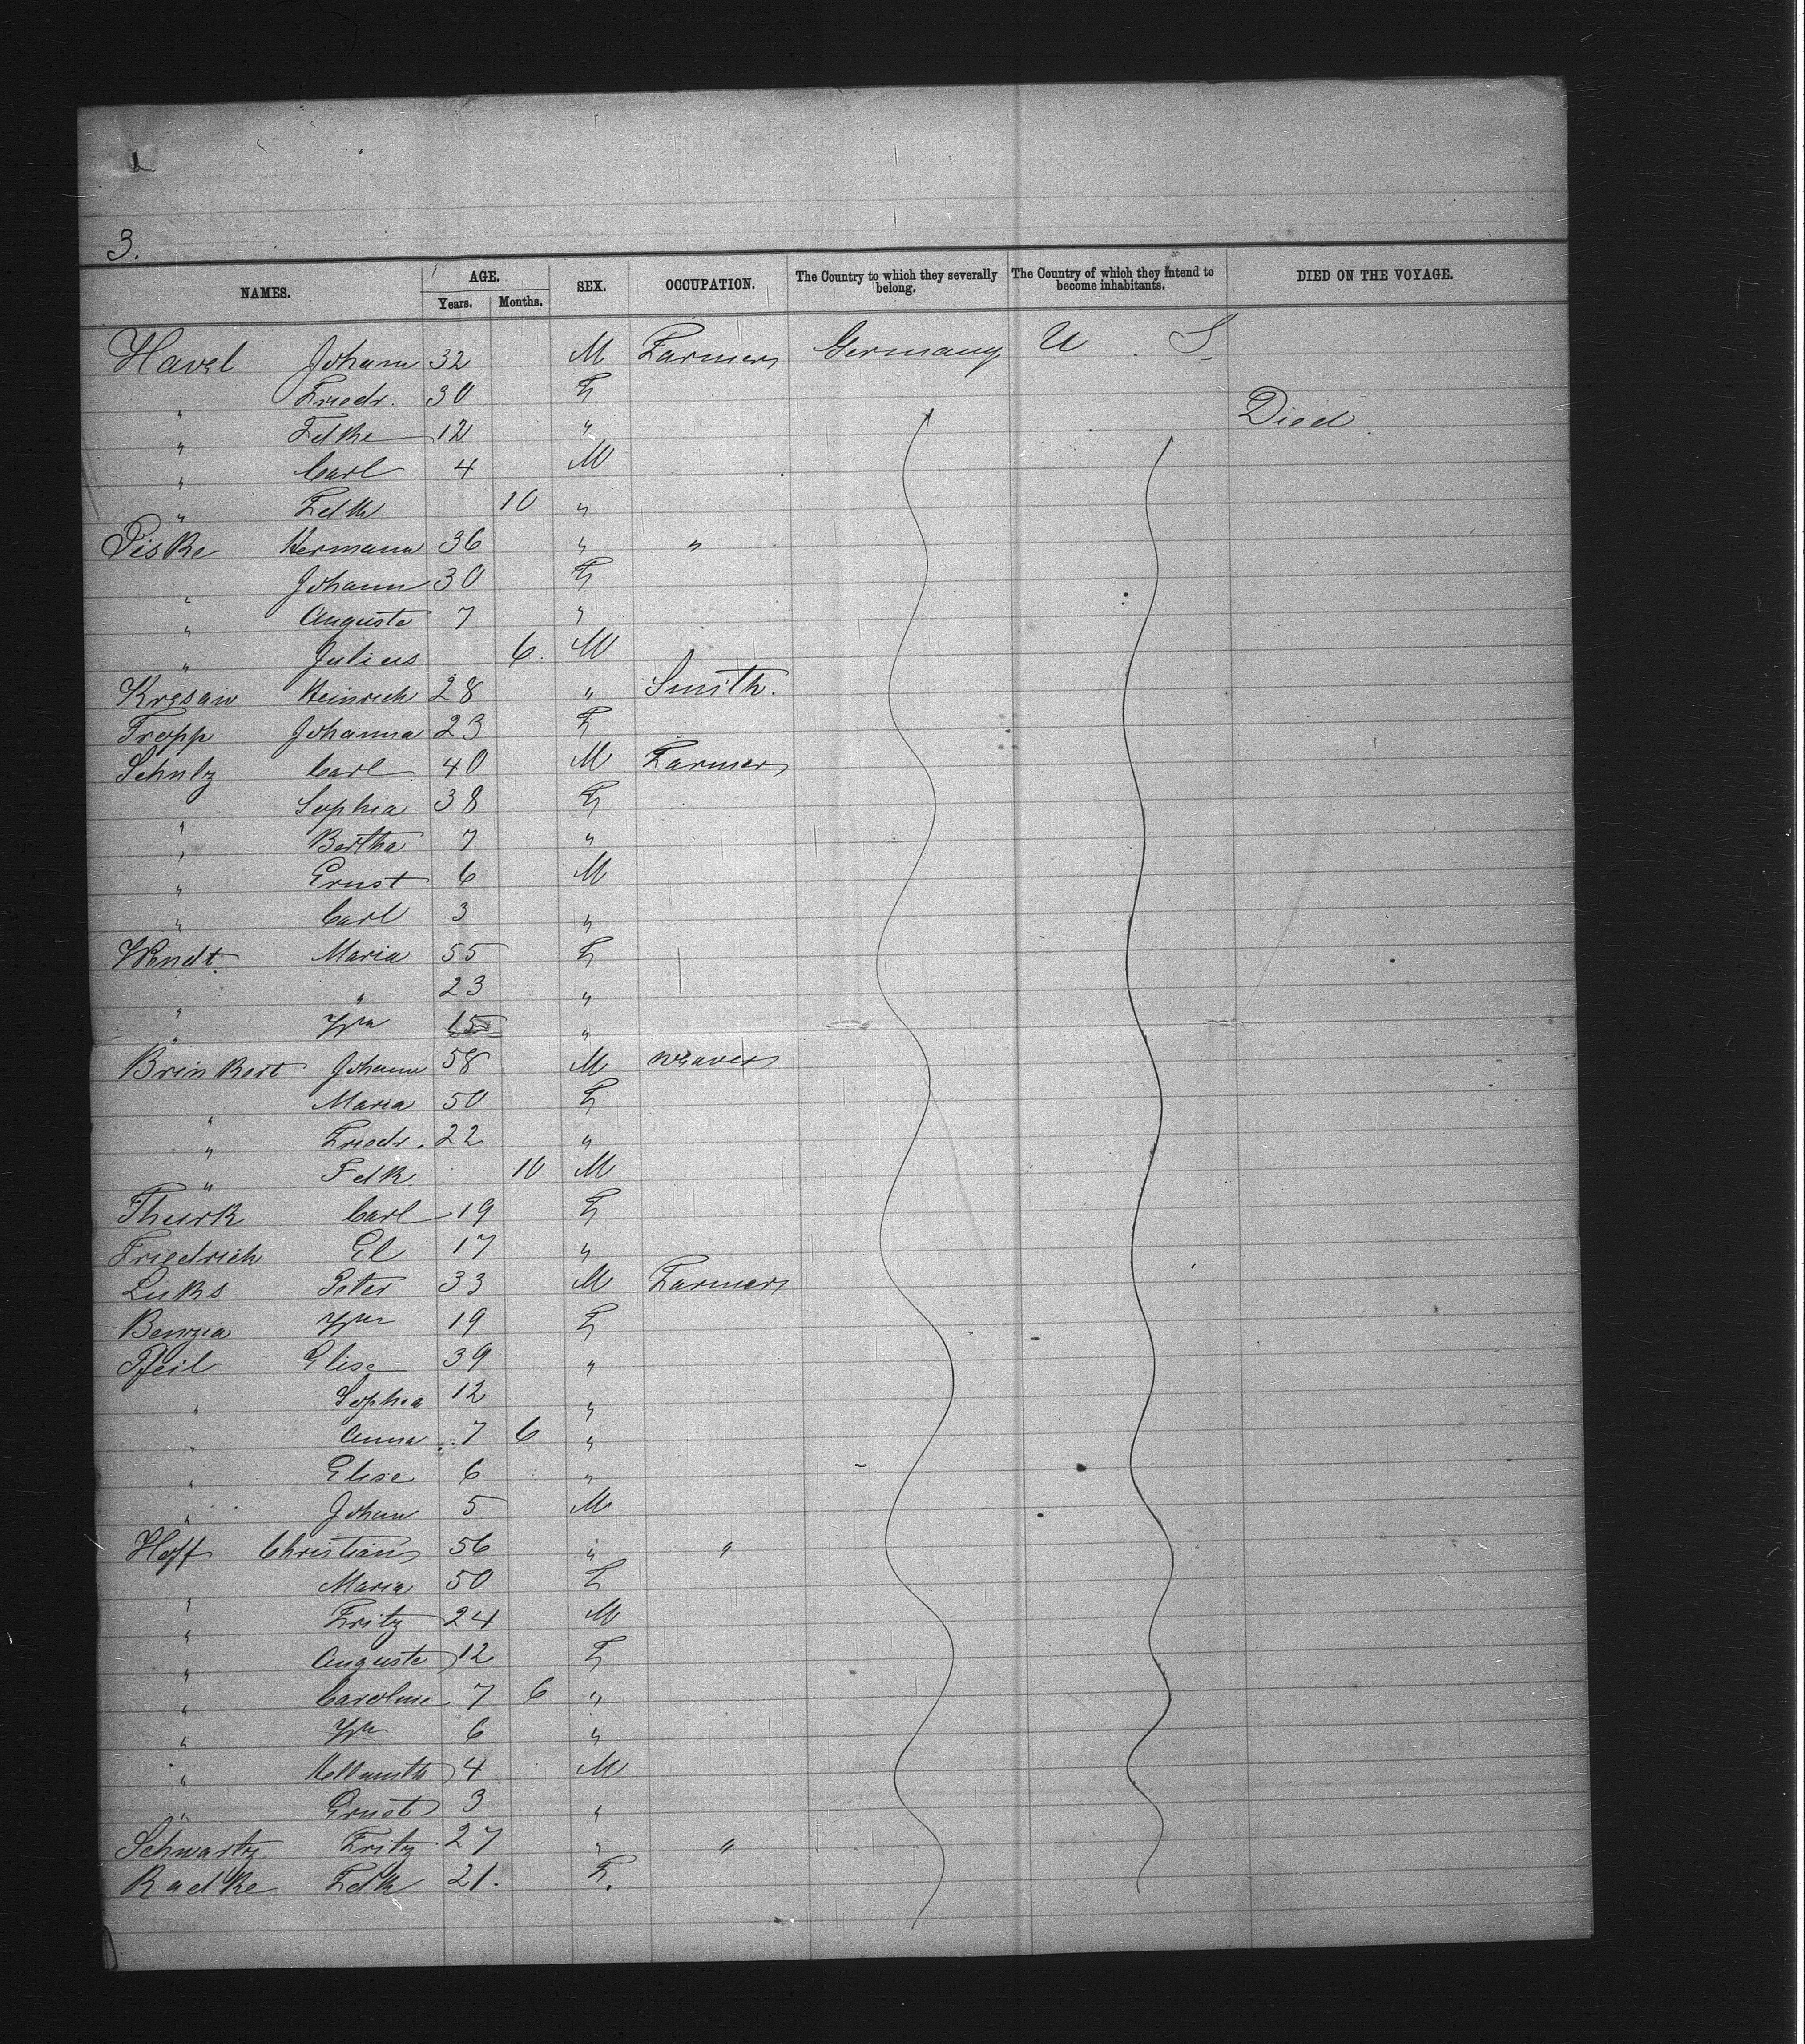 3.
NAMES. AGE. Years. Months. SEX. OCCUPATION. The Country to which they severally belong. The Country of which they intend to become inhabitants. DIED ON THE VOYAGE.
Havel Johann 32 M Farmer Germany U. S
" Friedr. 30 F
" Fdke 12 " Died.
" Carl 4 M
" Fdk 10 "
Piske Hermann 36 " "
" Johann 30 F
" Auguste 7 "
" Julius 6. M
Kresaw Heinrich 28 " Smith.
Tropp Johanna 23 F
Schulz Carl 40 M Farmer
" Sophia 38 F
" Bertha 7 "
" Ernst 6 M
" Carl 3 "
Wendt Maria 55 F
" " 23 "
" Wm 15 "
Brinkert Johann 58 M weaver
" Maria 50 F
" Friedr. 22 "
" Fdk. 10 M
Thurk Carl 19 F
Friedrich El 17 "
Luks Peter 33 M Farmer
Wm 19 F
Pfeil Elise 39 "
" Sophia 12 "
" Anna 7 6 "
" Elise 6 "
" Johann 5 M
Hoff Christian 56 " "
" Maria 50 F
" Fritz 24 M
" Auguste 12 F
" Caroline 7 6 "
" Wm 6 "
" Hellmuth 4 M
" Ernst 3 "
Schwartz Fritz 27 " "
Radke Fdk 21. F.